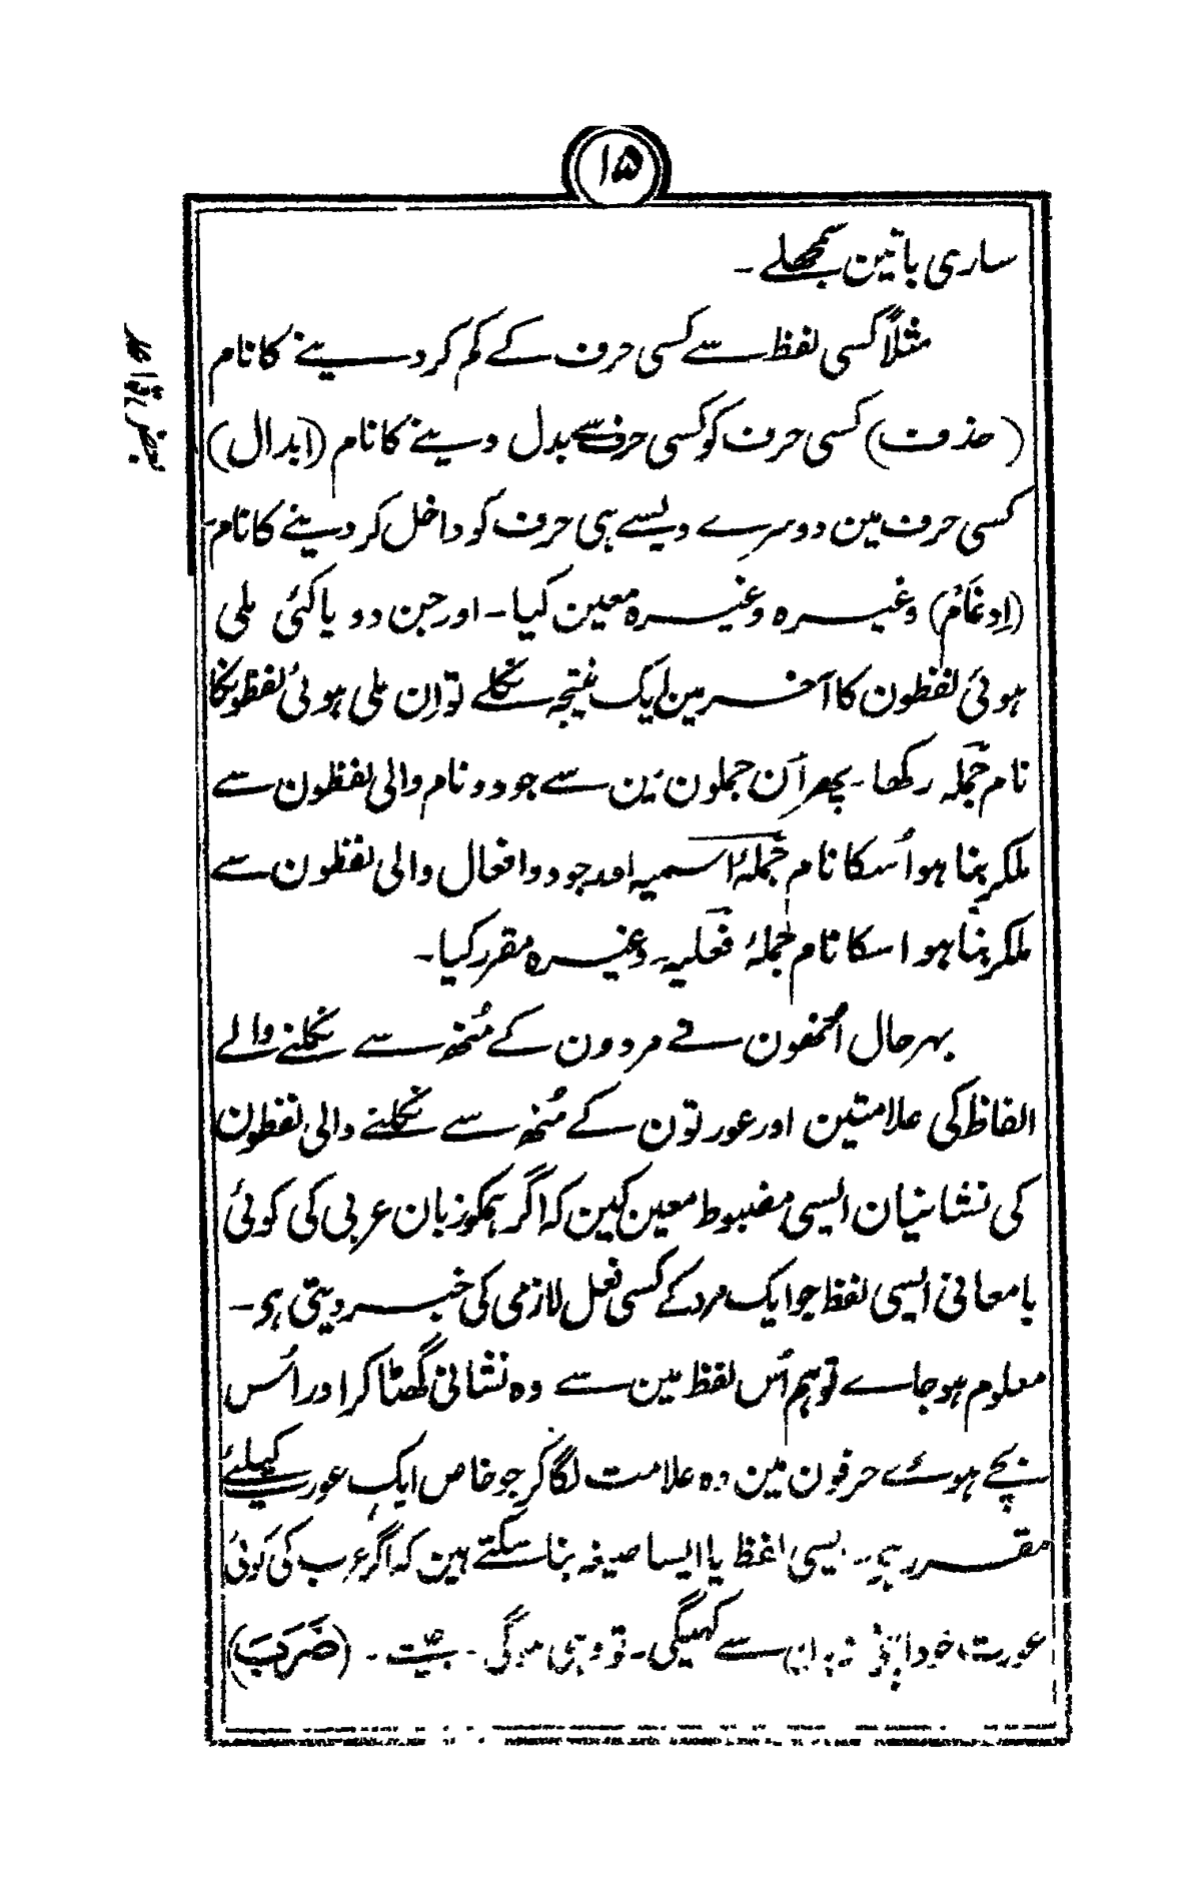 ۱۵
ساری باتین سمجھلے ۔
مثلاً کسی لفظ سے کسی حرف کے کم کردینے کا نام
(حذف) کسی حرف کو کسی حرف سے بدل دینے کا نام (ابدال)
کسی حرف مین دوسرے ویسے ہی حرف کو داخل کردینے کا نام
(اِدغَامْ) وغیرہ وغیرہ معین کیا ۔ اور جن دو یا کئی ملی
ہوئی لفظون کا آخر مین ایک نتیجہ نکلے تو اِن ملی ہوئی لفظونکا
نام جُملہ رکھا ۔ پھر اُن جملون مین سے جو دو نام والی لفظون سے
ملکر بنا ہوا اُسکا نام جملۂ اسمیہ اور جو دو افعال والی لفظون سے
ملکر بنا ہو اسکا نام جملۂ فعلیہ ۔ وغیرہ مقرر کیا ۔
بہر حال اُنھون نے مردون کے مُنھ سے نکلنے والے
الفاظ کی علامتین اور عورتون کے مُنھ سے نکلنے والی لفظون
کی نشانیان ایسی مضبوط معین کین کہ اگر ہمکو زبان عربی کی کوئی
بامعانی ایسی لفظ جو ایک مرد کے کسی فعل لازمی کی خبر دیتی ہو ۔
معلوم ہو جاے تو ہم اُس لفظ مین سے وہ نشانی گھٹا کر اور اُس
بچے ہوئے حرفون مین وہ علامت لگا کر جو خاص ایک عورت کیلئے
مقرر ہے ۔ ایسی لفظ یا ایسا صیغہ بنا سکتے ہین کہ اگر عرب کی کوئی
عورت خود اپنی زبان سے کہیگی ۔ تو وہی ہوگی ۔ ۔ (ضَرَبَ)
بعض قواعد